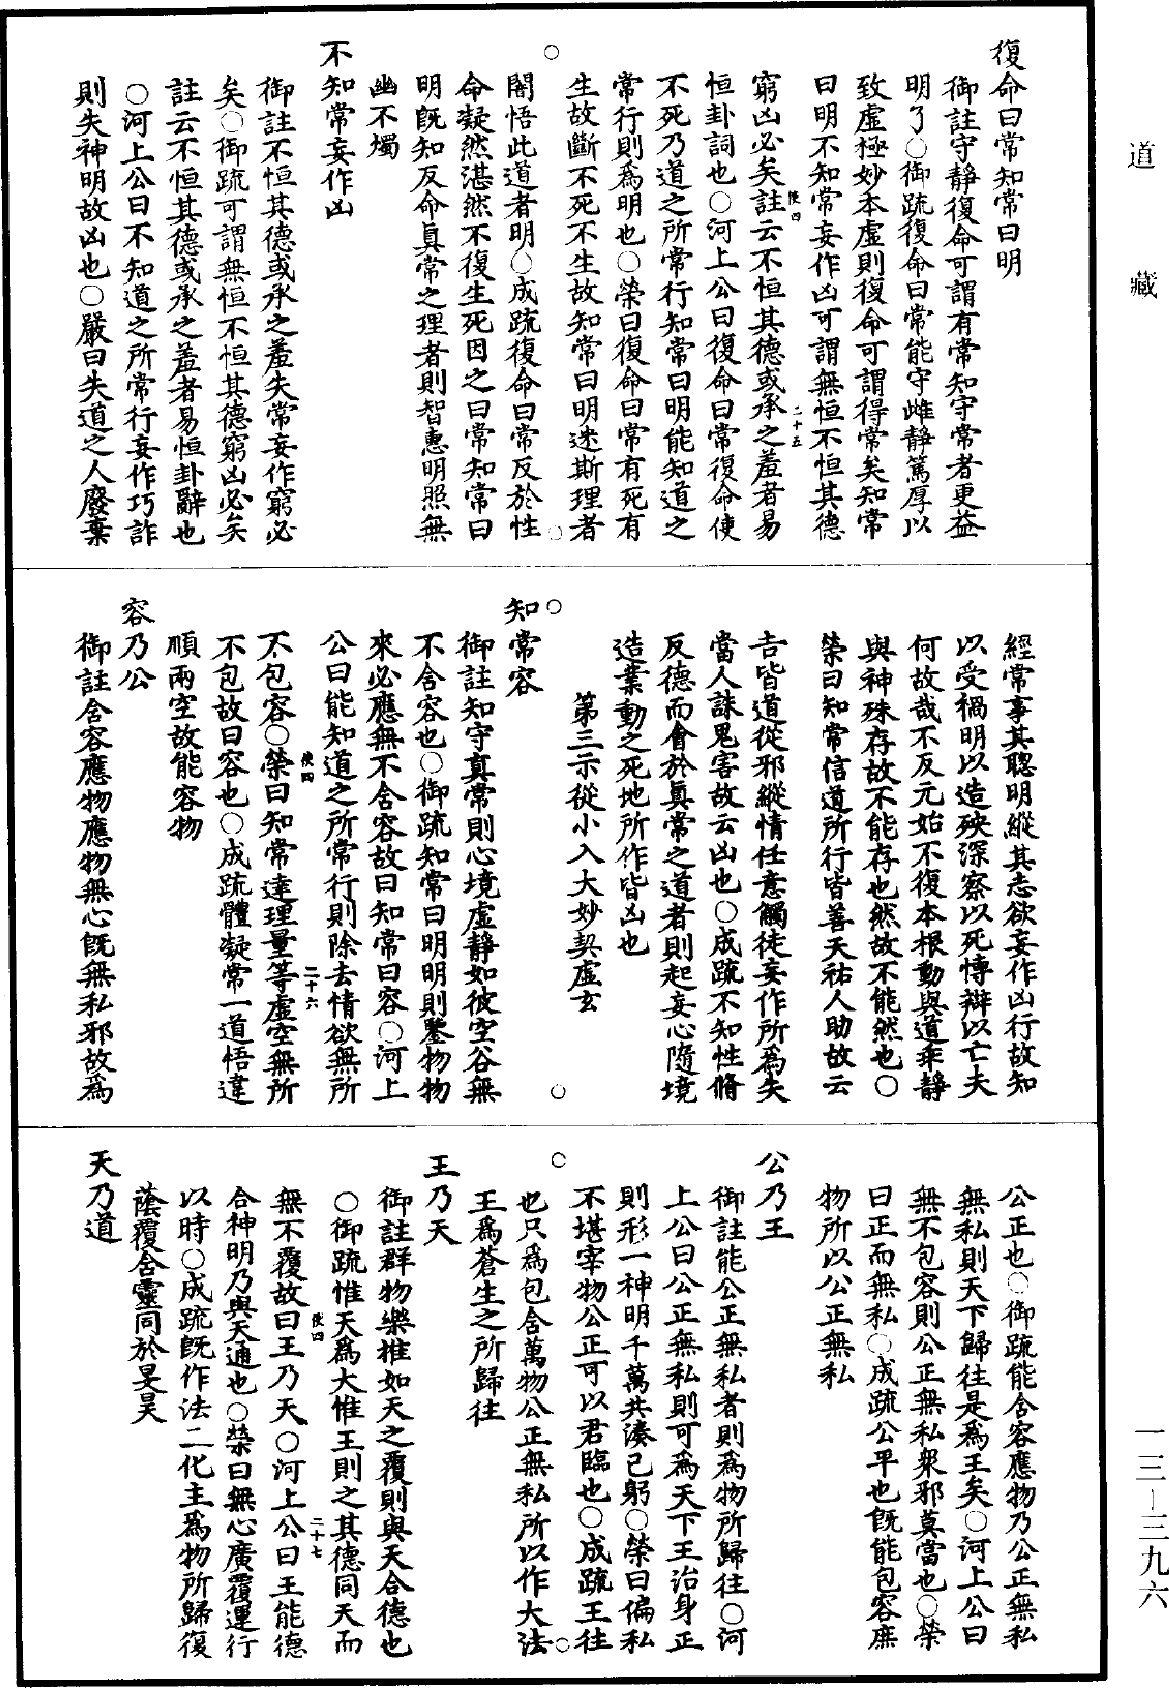 道藏
一三-三九六
復命曰常知常曰明
御註守靜復命可謂有常知守常者更益
明了○御疏復命曰常能守雌靜篤厚以
致虛極妙本虛則復命可謂得常矣知常
曰明不知常妄作凶可謂無恒不恒其德
使四 二十五
窮凶必矣註云不恒其德或承之羞者易
恒卦詞也○河上公曰復命曰常復命使
不死乃道之所常行知常曰明能知道之
常行則為明也○榮曰復命曰常有死有
生故斷不死不生故知常曰明迷斯理者
闇悟此道者明○成疏復命曰常反於性
命凝然湛然不復生死因之曰常知常曰
明既知反命真常之理者則智惠明照無
幽不燭
不知常妄作凶
御註不恒其德或承之羞失常妄作窮必
矣○御疏可謂無恒不恒其德窮凶必矣
註云不恒其德或承之羞者易恒卦辭也
○河上公曰不知道之所常行妄作巧詐
則失神明故凶也○嚴曰失道之人廢棄
經常事其聰明縱其志欲妄作凶行故知
以受禍明以造殃深察以死愽辯以亡夫
何故哉不反元始不復本根動與道乖靜
與神殊存故不能存也然故不能然也○
榮曰知常信道所行皆善天祐人助故云
吉皆道從邪縱情任意觸徒妄作所為失
當人誅鬼害故云凶也○成疏不知性脩
反德而會於真常之道者則起妄心隨境
造業動之死地所作皆凶也
第三示從小入大妙契虛玄
知常容
御註知守真常則心境虛靜如彼空谷無
不含容也○御疏知常曰明明則鑒物物
來必應無不含容故曰知常曰容○河上
公曰能知道之所常行則除去情欲無所
使四 二十六
不包容○榮曰知常達理量等虛空無所
不包故曰容也○成疏體凝常一道悟違
順兩空故能容物
容乃公
御註含容應物應物無心既無私邪故為
公正也○御疏能含容應物乃公正無私
無私則天下歸往是為王矣○河上公曰
無不包容則公正無私衆邪莫當也○榮
曰正而無私○成疏公平也既能包容庶
物所以公正無私
公乃王
御註能公正無私者則為物所歸往○河
上公曰公正無私則可為天下王治身正
則形一神明千萬共湊已躬○榮曰偏私
不堪宰物公正可以君臨也○成疏王往
也只為包含萬物公正無私所以作大法
王為蒼生之所歸往
王乃天
御註群物樂推如天之覆則與天合德也
○御疏惟天為大惟王則之其德同天而
使四 二十七
無不覆故曰王乃天○河上公曰王能德
合神明乃與天通也○榮曰無心廣覆運行
以時○成疏既作法二化主為物所歸復
蔭覆含靈同於旻昊
天乃道